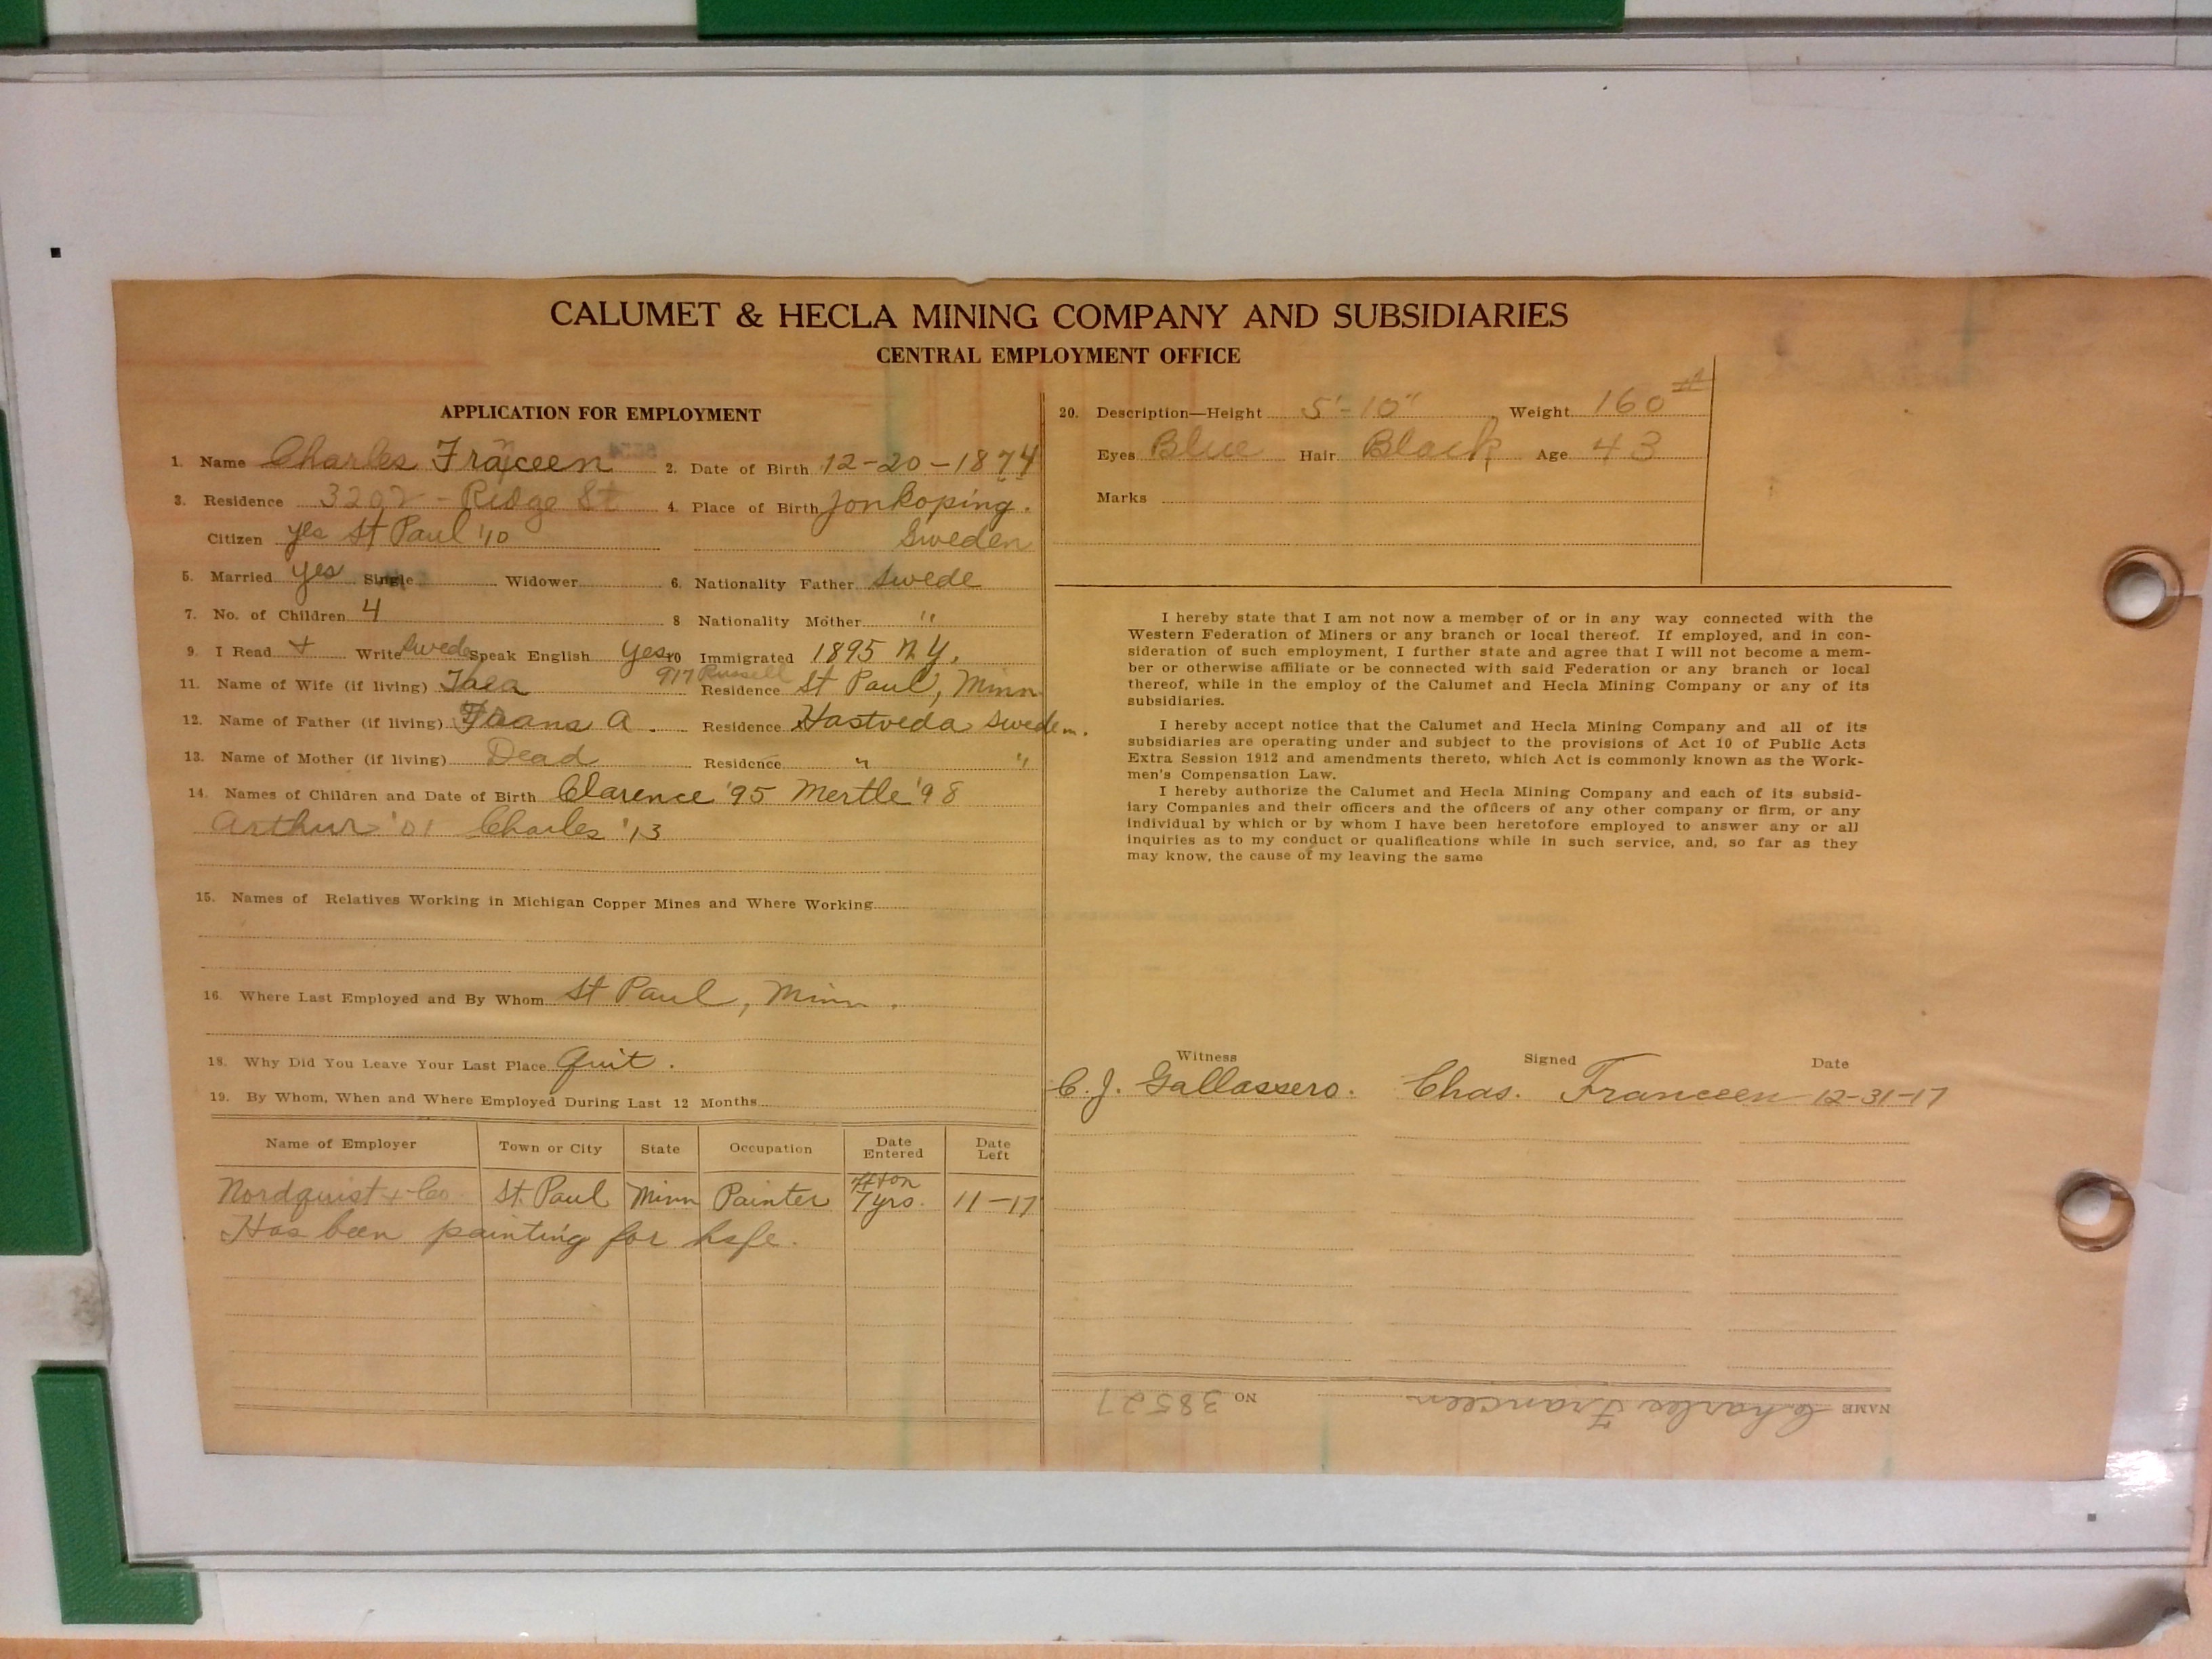 CALUMET & HECLA MINING COMPANY AND SUBSIDIARIES
CENTRAL EMPLOYMENT OFFICE
APPLICATION FOR EMPLOYMENT
1. Name Charles Franceen 2. Date of Birth 12-20-1874
3. Residence 3202 - Ridge St 4. Place of Birth Jonkoping.
Citizen yes St Paul '10 Sweden
5. Married yes Single Widower 6. Nationality Father Swede
7. No. of Children 4 8 Nationality Mother "
9. I Read + Write Swede Speak English Yes 10 Immigrated 1895 N.Y.
917 Russell
11. Name of Wife (if living) Residence St Paul, Minn
12. Name of Father (if living) Frans A. Residence Hastveda Sweden.
13. Name of Mother (if living) Dead Residence " "
14. Names of Children and Date of Birth Clarence '95 Mertle '98
Arthur '01 Charles '13
15. Names of Relatives Working in Michigan Copper Mines and Where Working
16. Where Last Employed and By Whom St Paul, Minn.
18. Why Did You Leave Your Last Place Quit.
19. By Whom, When and Where Employed During Last 12 Months
Name of Employer Town or City State Occupation Date Entered Date Left
Nordquist + Co St. Paul Minn Painter 7 yrs. 11-17
Has been painting for
20. Description—Height 5'-10" Weight 160#
Eyes Blue Hair Black Age 43
Marks
I hereby state that I am not now a member of or in any way connected with the
Western Federation of Miners or any branch or local thereof. If employed, and in con-
sideration of such employment, I further state and agree that I will not become a mem-
ber or otherwise affiliate or be connected with said Federation or any branch or local
thereof, while in the employ of the Calumet and Hecla Mining Company or any of its
subsidiaries.
I hereby accept notice that the Calumet and Hecla Mining Company and all of its
subsidiaries are operating under and subject to the provisions of Act 10 of Public Acts
Extra Session 1912 and amendments thereto, which Act is commonly known as the Work-
men's Compensation Law.
I hereby authorize the Calumet and Hecla Mining Company and each of its subsid-
iary Companies and their officers and the officers of any other company or firm, or any
individual by which or by whom I have been heretofore employed to answer any or all
inquiries as to my conduct or qualifications while in such service, and, so far as they
may know, the cause of my leaving the same
Witness Signed Date
C. J. Gallassero. Chas. Franceen 12-31-17
NAME Charles Franceen NO 38527